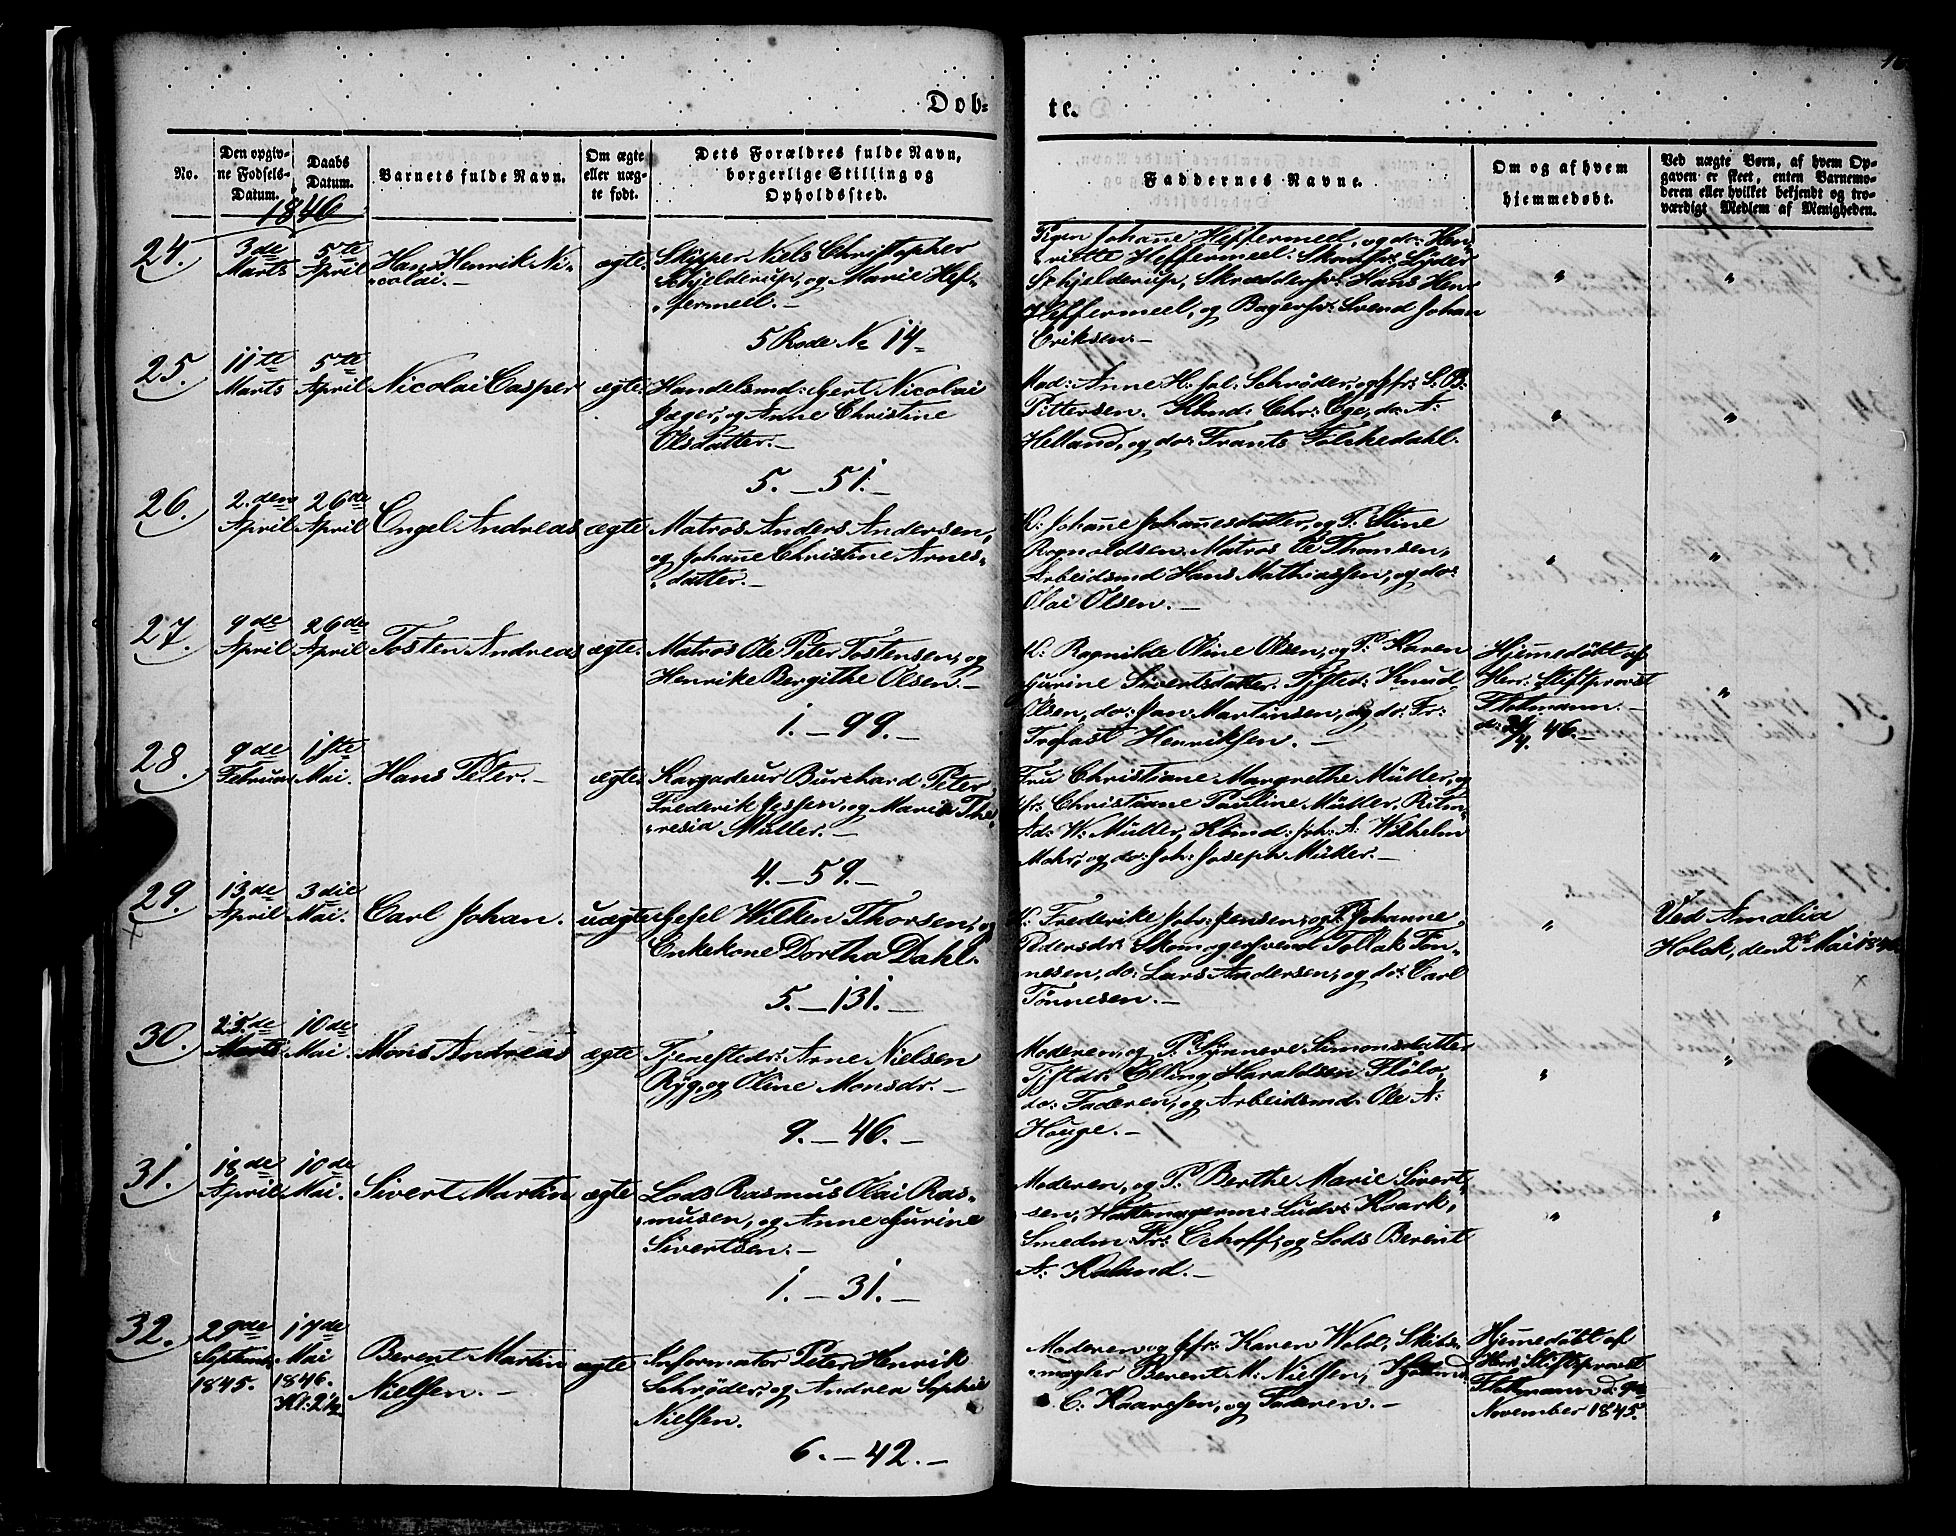 16
Døb-
te.
No.
Den opgiv-
ne Fødsels-
Datum.
Daabs
Datum.
Barnets fulde Navn.
Om ægte
eller uæg-
te født.
Dets Forældres fulde Navn,
borgerlige Stilling og
Opholdssted.
Faddernes Navne.
Om og af hvem
hjemmedøbt.
Ved uægte Børn, af hvem Op-
gaven er skeet, enten Barnemo-
deren eller hvilket bekjendt og tro-
værdigt Medlem af Menigheden.
1846
24.
3de
Marts
5te
April
Hans Henrik Ni-
colai.-
ægte
Skipper Niels Christopher
Schjelderup, og Marie Hef-
fermeel.-
5 Rode No 14-
Pigen Johanne Heffermeel, og do: Hen-
riette Heffermeel. Lyder
Schjelderup, Hans Hen:
Heffermeel, og Bagersv: Svend Johan
Eriksen.-
"
"
25.
11te
Marts
5te
April
Nicolai Casper
ægte
Handelsmd: Gert Nicolai
Jæger, og Anne Christine
Olsdatter.-
5.-51.-
Mad: Anne H: Schrøder, og Jfr: S. B:
Pittersen. Kbmd: Chr: Ege, do: A:
Helland, og do: Frants Falchedahl.
"
"
26.
2den
April
26de
April
Engel Andreas
ægte
Matros Anders Andersen,
og Johanne Christine Arnes-
datter.-
K: Johanne Johannesdatter, og P: Stine
Rognoldsen. Matros Ole Thomsen,
Arbeidsmd Hans Mathiassen, og do:
Olai Olsen.-
"
"
27.
9de
April
26de
April
Tosten Andreas
ægte
Matros Ole Peter Tostensen, og
Henrike Bergithe Olsen.-
1.-99.-
K: Rognilde Oline Olsen, og P: Karen
Gurine Sivertsdatter. Tjsted: Knud
Olsen, do: Jan Martinsen, og do: Fr:
Trofast Henriksen.-
Hjemmedøbt af
Herr: Stiftprovst
"
28.
9de
Februar
1ste
Mai.
Hans Peter.-
ægte
Kargadeur Burchard Peter
Frederik Jessen, og Maria The-
resia Müller.-
4.-59.-
Fru Christiane Margrethe Müller, og
Jfr: Christiane Pauline Müller. Ritm:
Ad: W: Müller, Kbmd: Joh: A: Wilhelm
Mohr, og do: Joh: Joseph Müller.-
29.
13de
April
3die
Mai.
Carl Johan.
uægte
Gesel Wilken Thorsen, og
Enkekone Dorthea Dahl.
5.-131.-
K: Frederike Joh: Jensen, og P: Johanne
Pedersdr: Skomagersvend Tollak Tøn-
nesen, do: Lars Andersen, og do: Carl
Tønnesen.-
"
Ved Amalia
Holck, den 2 Mai 1846.
30.
25de
Marts
10de
Mai.
Mons Andreas
ægte
Tjenestedr: Arne Nielsen
Ryg, og Oline Monsdr.-
9.-46.-
Moderen, og P: Synneve Simonsdatter
Tjstdr: Elling Haraldsen Fløto,
do: Faderen, og Arbeidsmd. Ole A:
Houge.-
"
"
31.
18de
April
10de
Mai.
Sivert Martin
ægte
Lods Rasmus Olai Ras-
musen, og Anne Gurine
Sivertsen.-
1.-31.-
Moderen, og P: Berthe Marie Sivert-
sen, Hattemagerm: Ludv: Kvark,
Smedm: Fr: Echoff, og Lods Berent
A: Kaland.-
"
"
32.
29de
Septembr
1845.
17de
Mai
1846.
Kl: 2 1/2
Berent Martin
Nielsen.-
ægte
Informator Peter Henrik
Schrøder, og Andrea Sophie
Nielsen.
6.-42.-
Moderen, og Jfr: Karen Wold, Skibs-
mægler Berent M: Nielsen,
C: Kaaresen, og Faderen.-
Hjemmedøbt af
Herr: Stiftsprovst
November 1845.